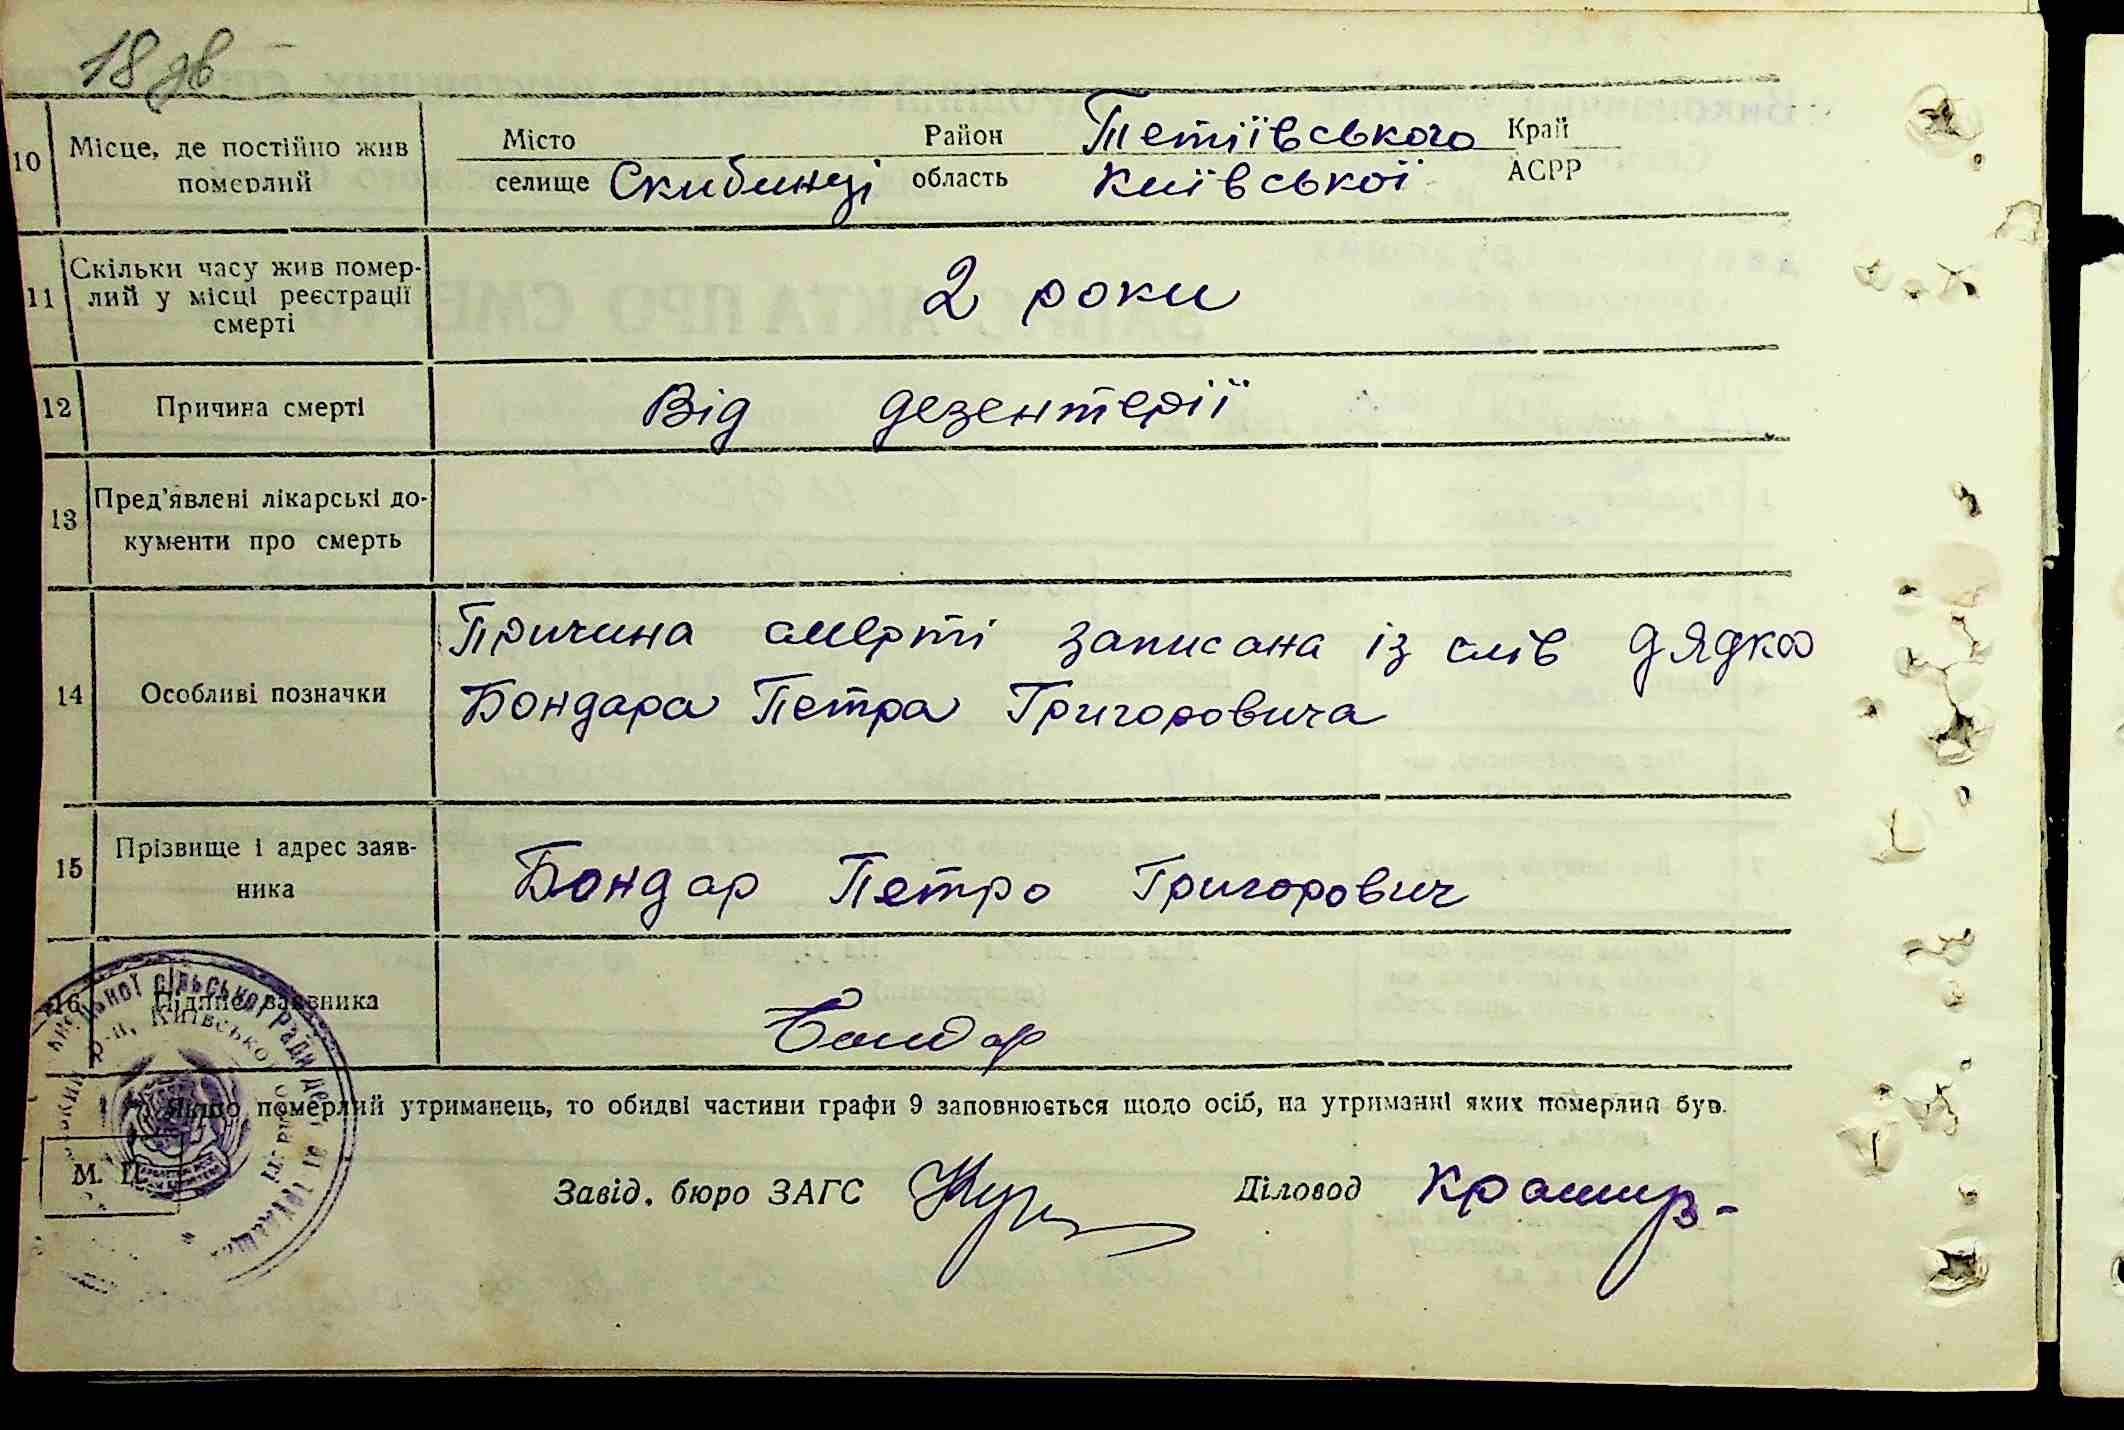 18 дв
10 Місце, де постійно жив померлий
Місто Район Тетіївського Край
селище Скибинці область Київської АСРР
11 Скільки часу жив помер-
лий у місці реєстрації
смерті
2 роки
12 Причина смерті Від дезентерії
13 Пред'явлені лікарські до-
кументи про смерть
14 Особливі позначки
Причина смерті записана із слів дядка
Бондара Петра Григоровича
15 Прізвище і адрес заяв-
ника
Бондар Петро Григорович
16 Підпис заявника Бондар
Якщо померлий утриманець, то обидві частини графи 9 заповнюється щодо осіб, на утриманні яких померлий був.
М. П.
Завід. бюро ЗАГС Діловод
сільської Ради деп
р-н, Київської області